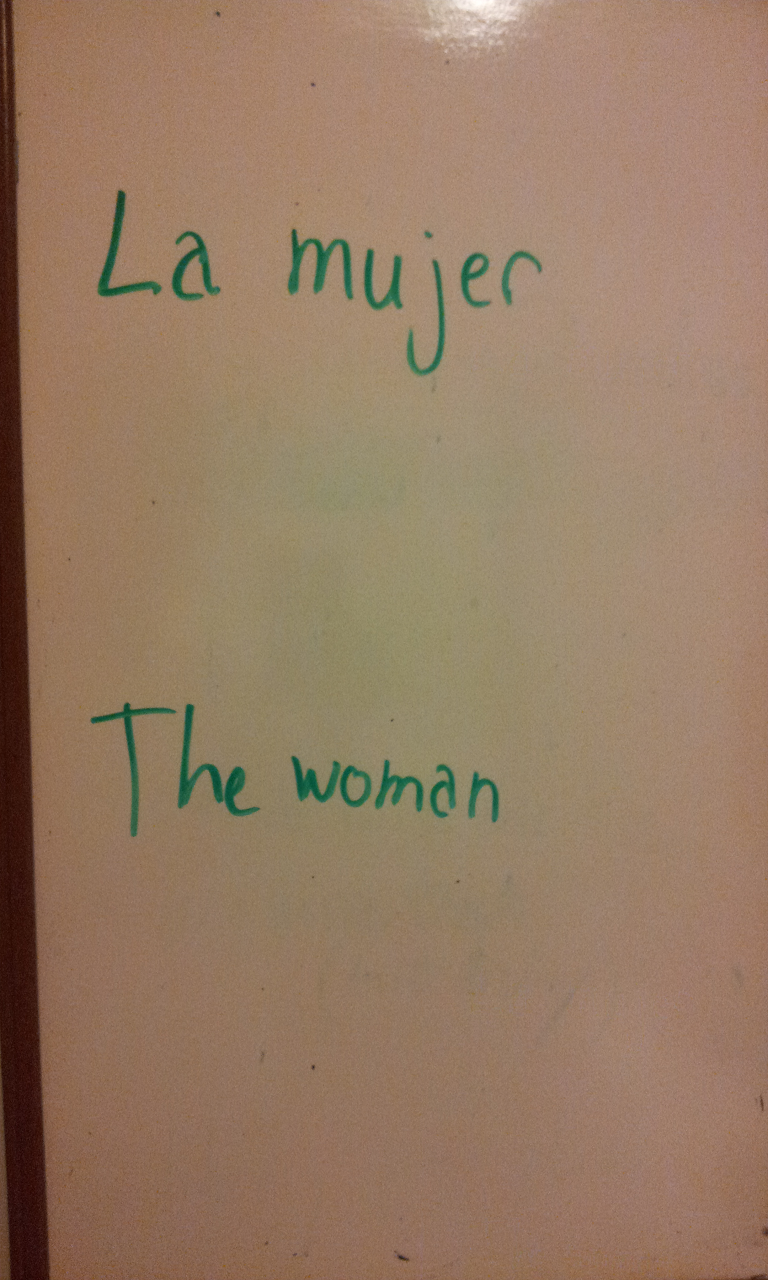 La mujer
The woman